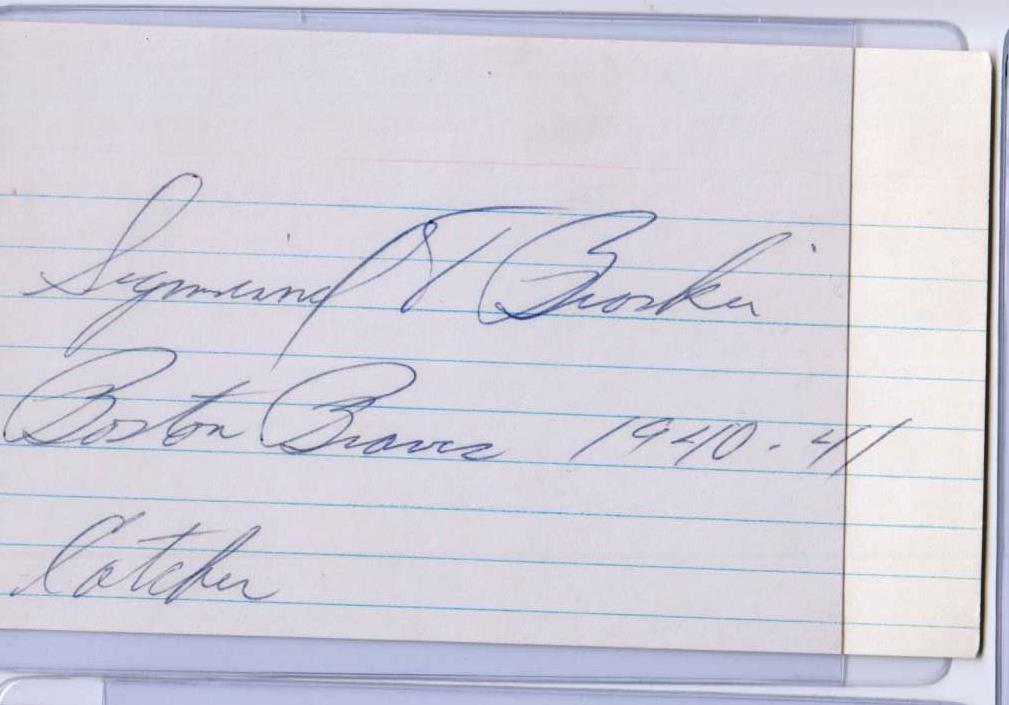 Sigmund T Broskie
Boston Braves 1940-41
Catcher